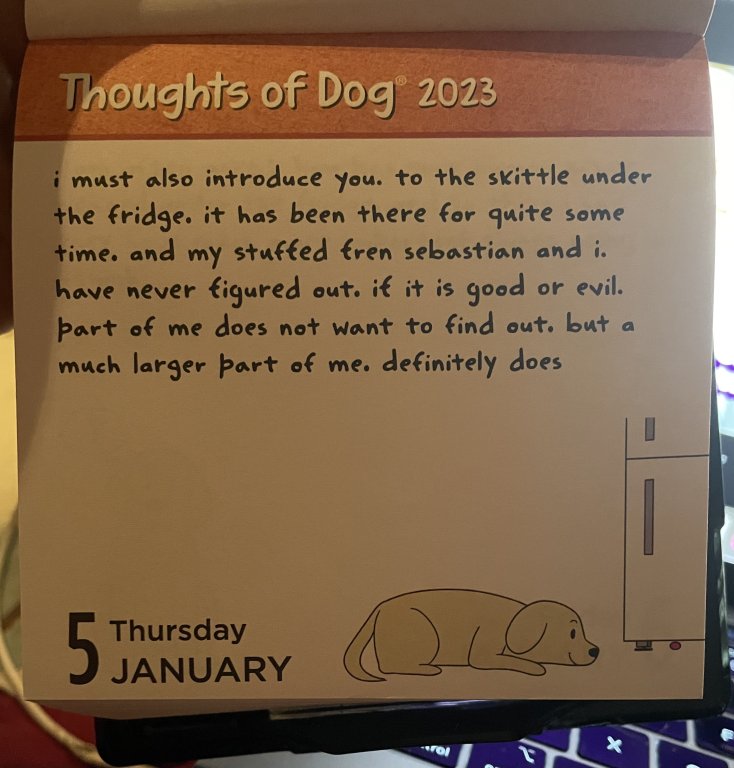 Thoughts of Dog® 2023
i must also introduce you. to the skittle under
the fridge. it has been there for quite some
time. and my stuffed fren sebastian and i.
have never figured out. if it is good or evil.
part of me does not want to find out. but a
much larger part of me. definitely does
5 Thursday
JANUARY